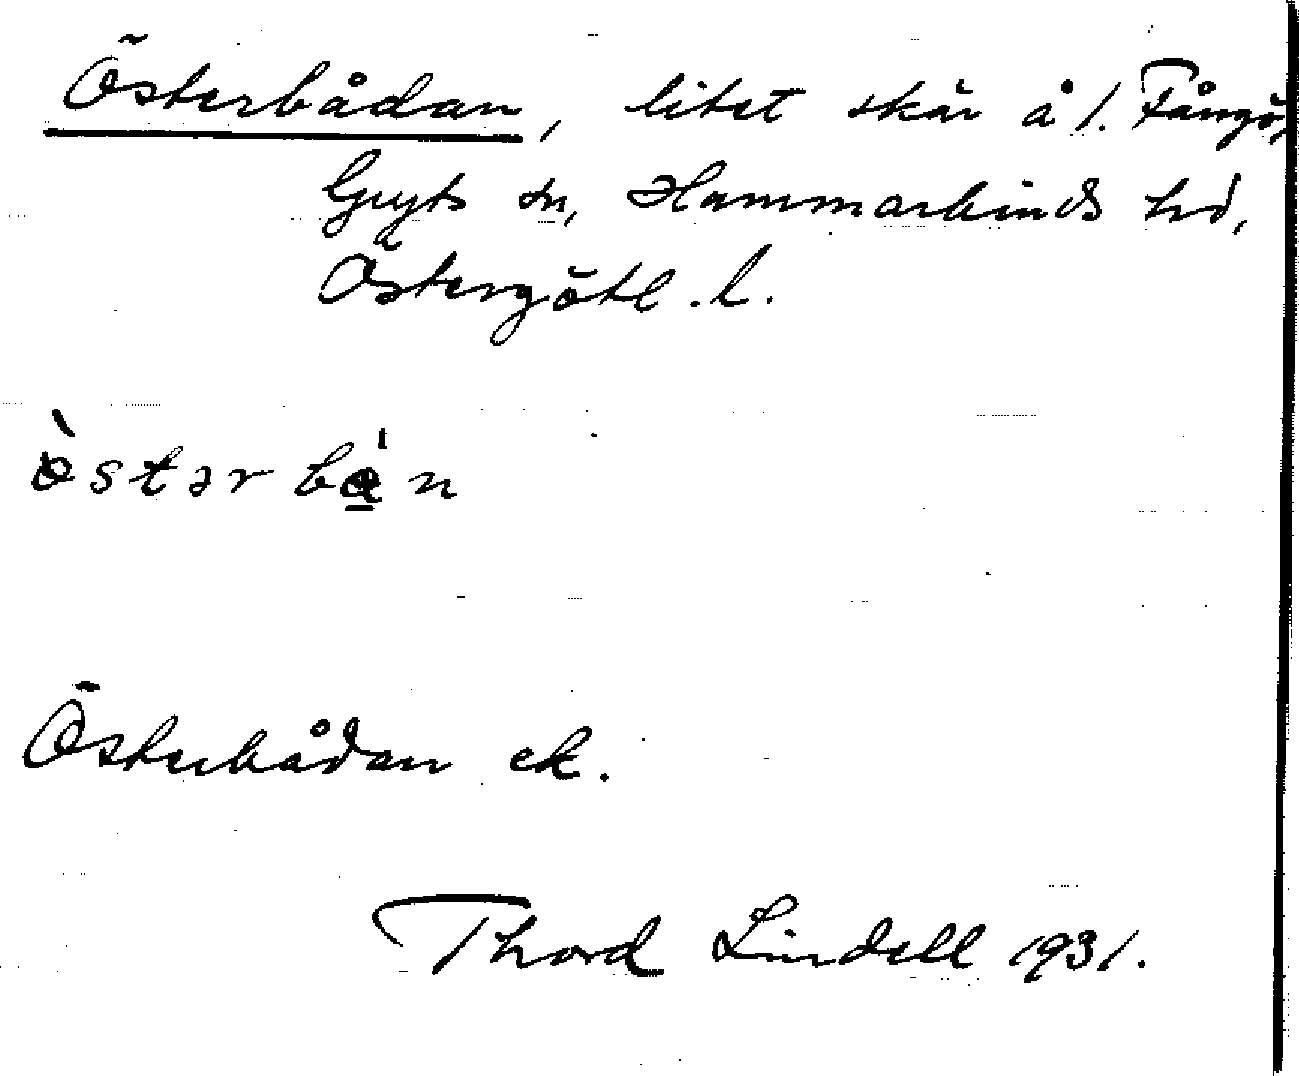 Österbådan, litet skär å 1. Fångö,
Gryts sn, Hammarkinds hd,
Östergötl. l.
òstərbá̱n
Österbådan ek.
Thord Lindell 1931.